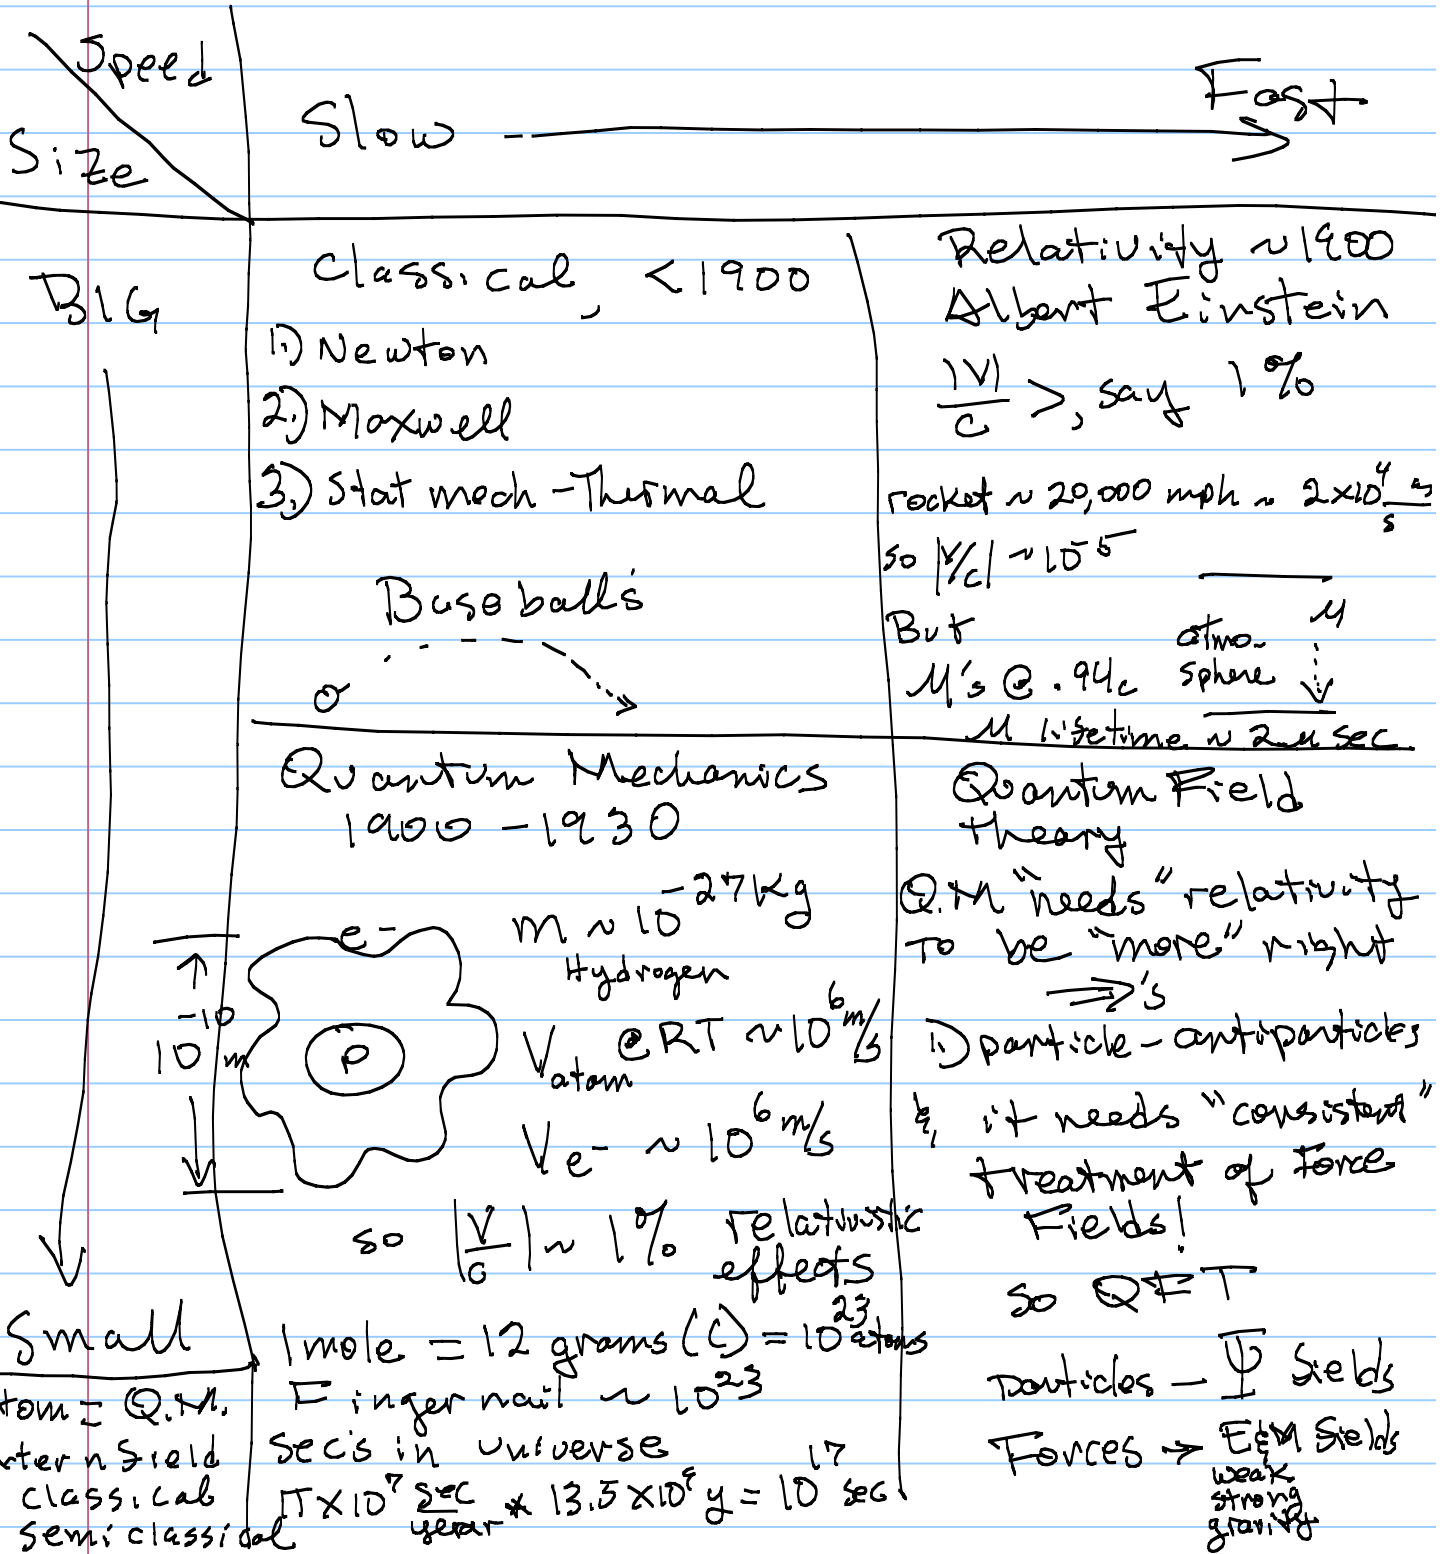 Speed
Size
Slow
Fast
BIG
Classical, <1900
1.) Newton
2.) Maxwell
3.) Stat mech - Thermal
Baseballs
Relativity ~1900
Albert Einstein
|V|/c >, say 1%
rocket ~ 20,000 mph ~ 2×10⁴ m/s
so |V/c| ~ 10⁻⁵
But
μ's @ .94c
atmo-
sphere
μ
μ lifetime ~ 2μ sec
Quantum Mechanics
1900 - 1930
e-
P
10⁻¹⁰ m
m ~ 10⁻²⁷ Kg
Hydrogen
V atom @ RT ~ 10⁶ m/s
V e- ~ 10⁶ m/s
so |V/c| ~ 1% relativistic
effects
Small
1 mole = 12 grams (C) = 10²³ atoms
Finger nail ~ 10²³
Sec's in universe
π×10⁷ sec/year * 13.5×10⁹ y = 10¹⁷ sec
tom = Q.M.
ter n field
classical
semiclassical
Quantum Field
theory
Q.M "needs" relativity
To be "more" right
⇒'s
1.) particle - antiparticles
&, it needs "consistent"
treatment of Force
Fields!
so QFT
particles - Ψ fields
Forces → E&M fields
weak
strong
gravity